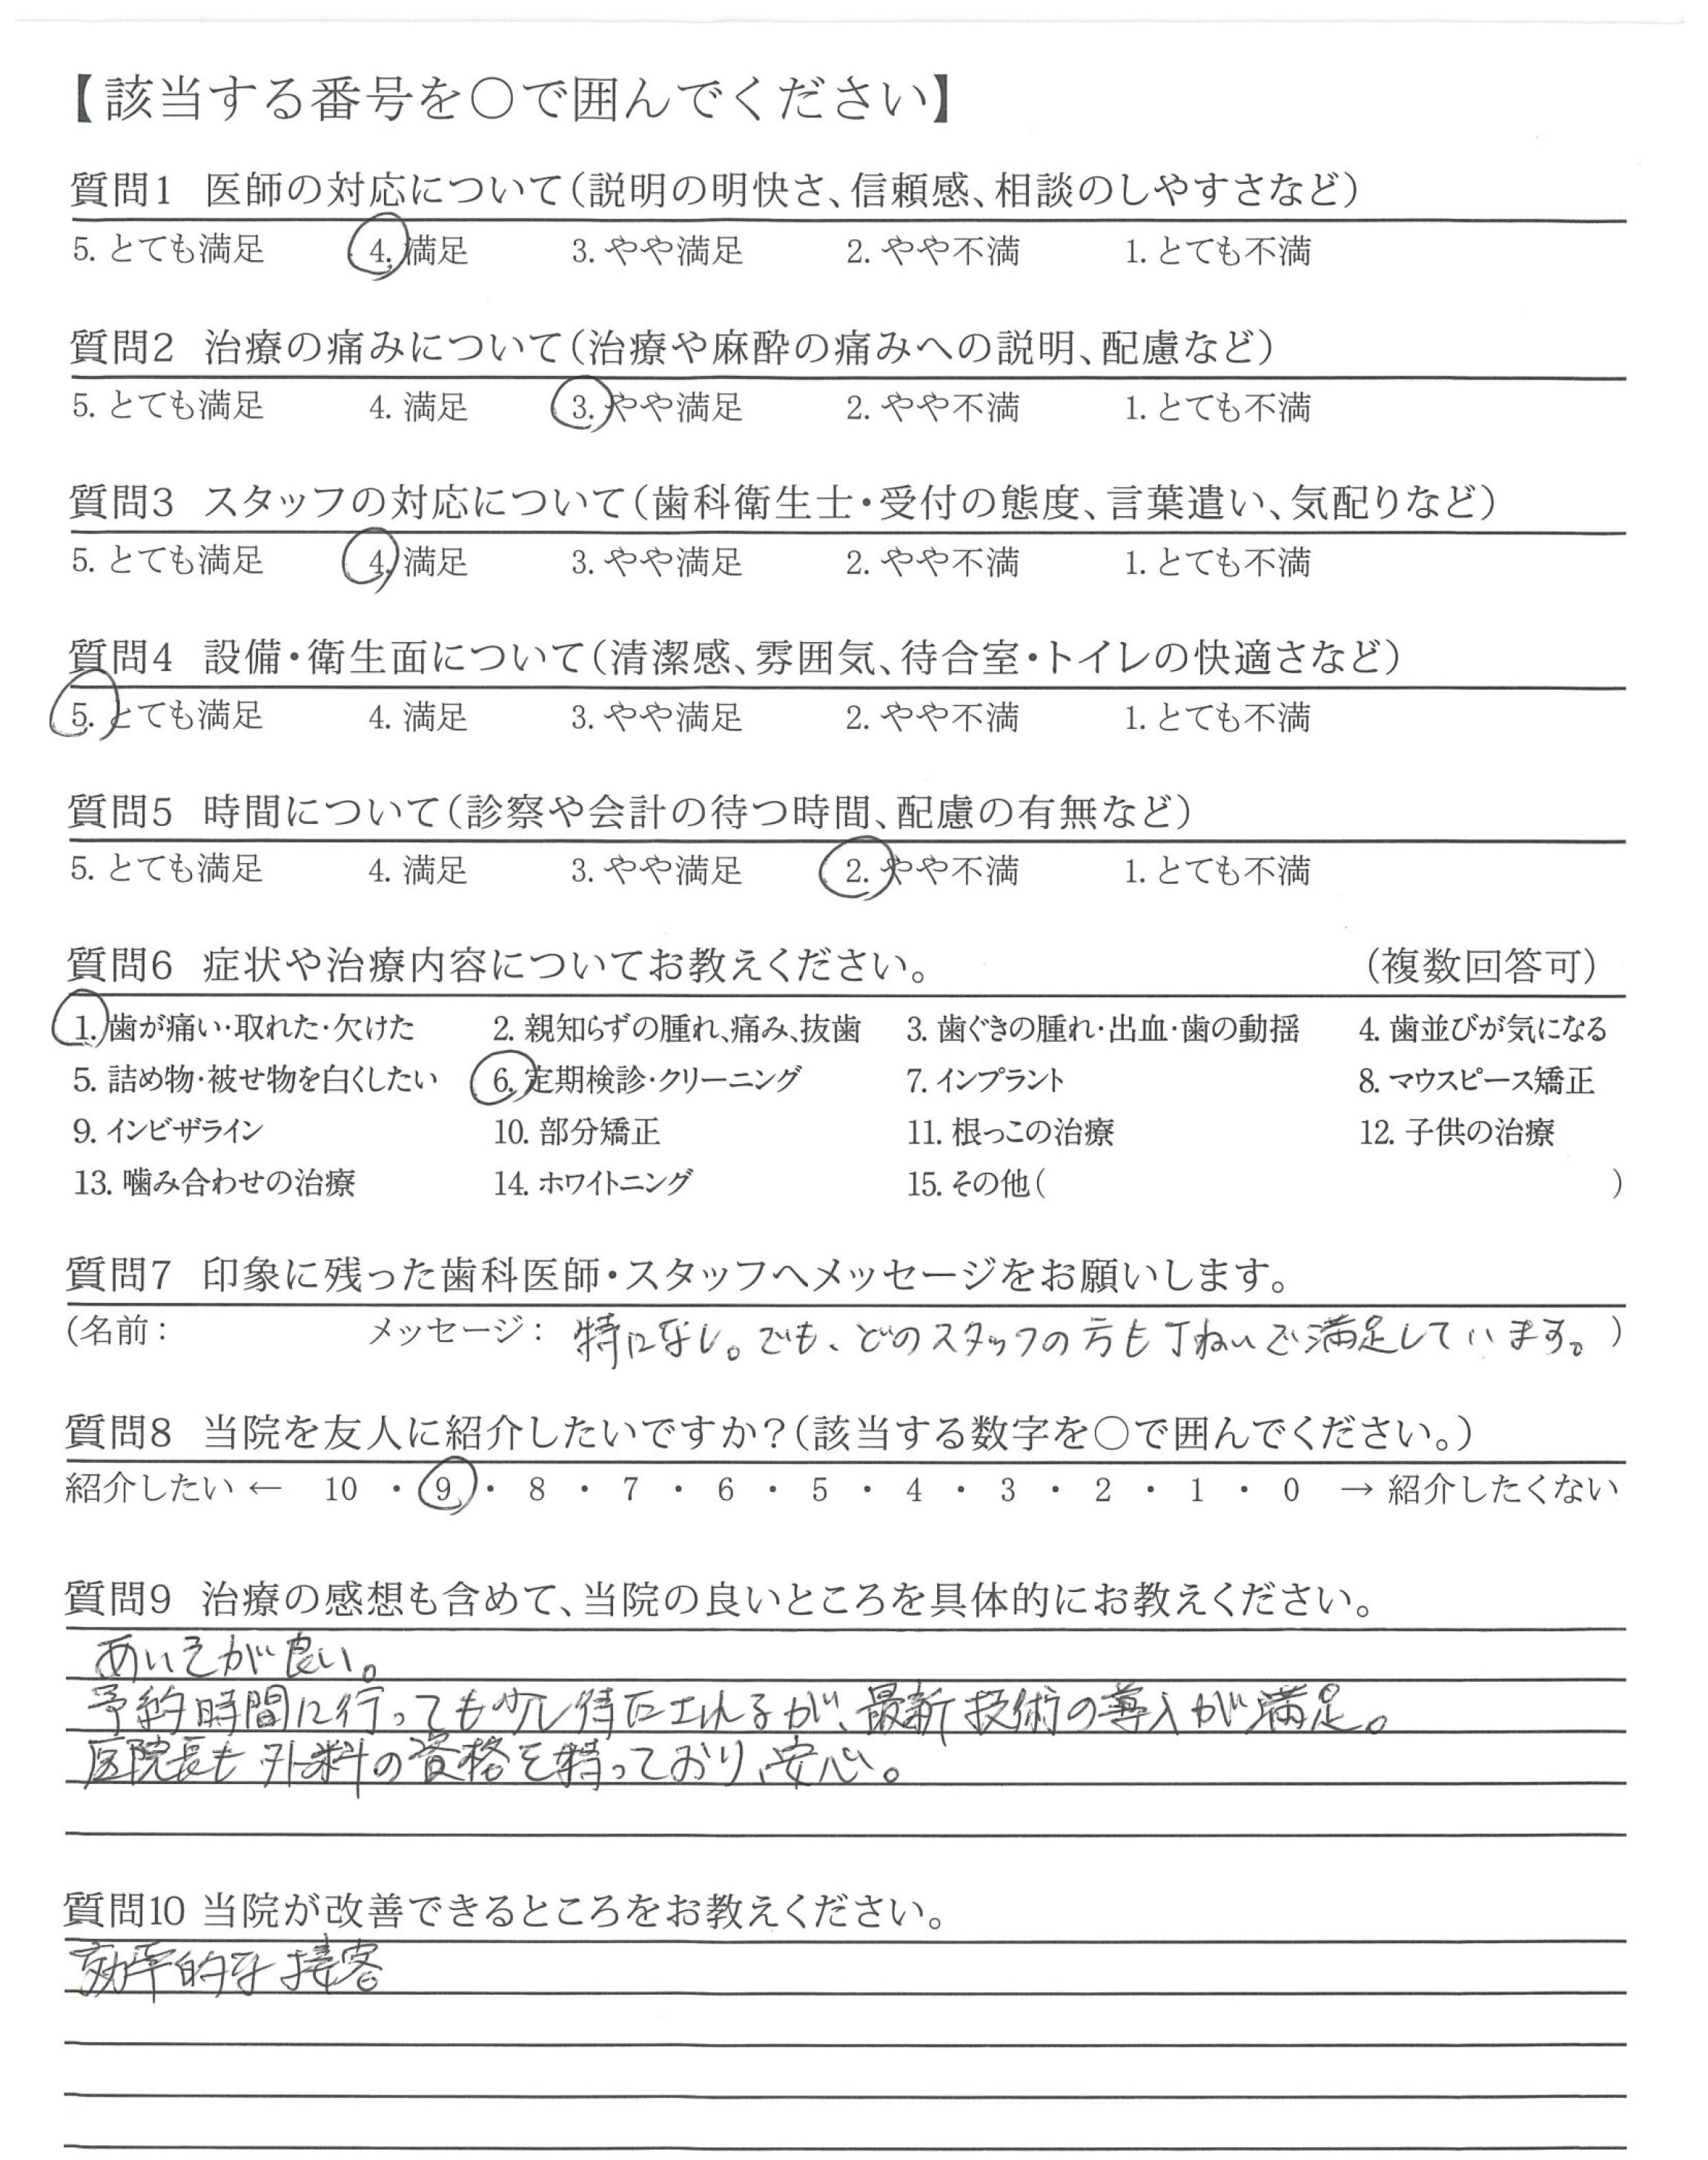 【該当する番号を○で囲んでください】
質問1 医師の対応について(説明の明快さ、信頼感、相談のしやすさなど)
5. とても満足 4. 満足 3. やや満足 2. やや不満 1. とても不満
質問2 治療の痛みについて(治療や麻酔の痛みへの説明、配慮など)
5. とても満足 4. 満足 3. やや満足 2. やや不満 1. とても不満
質問3 スタッフの対応について(歯科衛生士・受付の態度、言葉遣い、気配りなど)
5. とても満足 4. 満足 3. やや満足 2. やや不満 1. とても不満
質問4 設備・衛生面について(清潔感、雰囲気、待合室・トイレの快適さなど)
5. とても満足 4. 満足 3. やや満足 2. やや不満 1. とても不満
質問5 時間について(診察や会計の待つ時間、配慮の有無など)
5. とても満足 4. 満足 3. やや満足 2. やや不満 1. とても不満
質問6 症状や治療内容についてお教えください。 (複数回答可)
1. 歯が痛い・取れた・欠けた 2. 親知らずの腫れ、痛み、抜歯 3. 歯ぐきの腫れ・出血・歯の動揺 4. 歯並びが気になる
5. 詰め物・被せ物を白くしたい 6. 定期検診・クリーニング 7. インプラント 8. マウスピース矯正
9. インビザライン 10. 部分矯正 11. 根っこの治療 12. 子供の治療
13. 噛み合わせの治療 14. ホワイトニング 15. その他( )
質問7 印象に残った歯科医師・スタッフへメッセージをお願いします。
(名前: メッセージ: 特になし。でも、どのスタッフの方も丁ねいで満足しています。)
質問8 当院を友人に紹介したいですか?(該当する数字を○で囲んでください。)
紹介したい ← 10 ・ 9 ・ 8 ・ 7 ・ 6 ・ 5 ・ 4 ・ 3 ・ 2 ・ 1 ・ 0 → 紹介したくない
質問9 治療の感想も含めて、当院の良いところを具体的にお教えください。
あいそが良い。
予約時間に行っても少し待たされるが、最新技術の導入が満足。
医院長も外科の資格を持っており、安心。
質問10 当院が改善できるところをお教えください。
効率的な接客